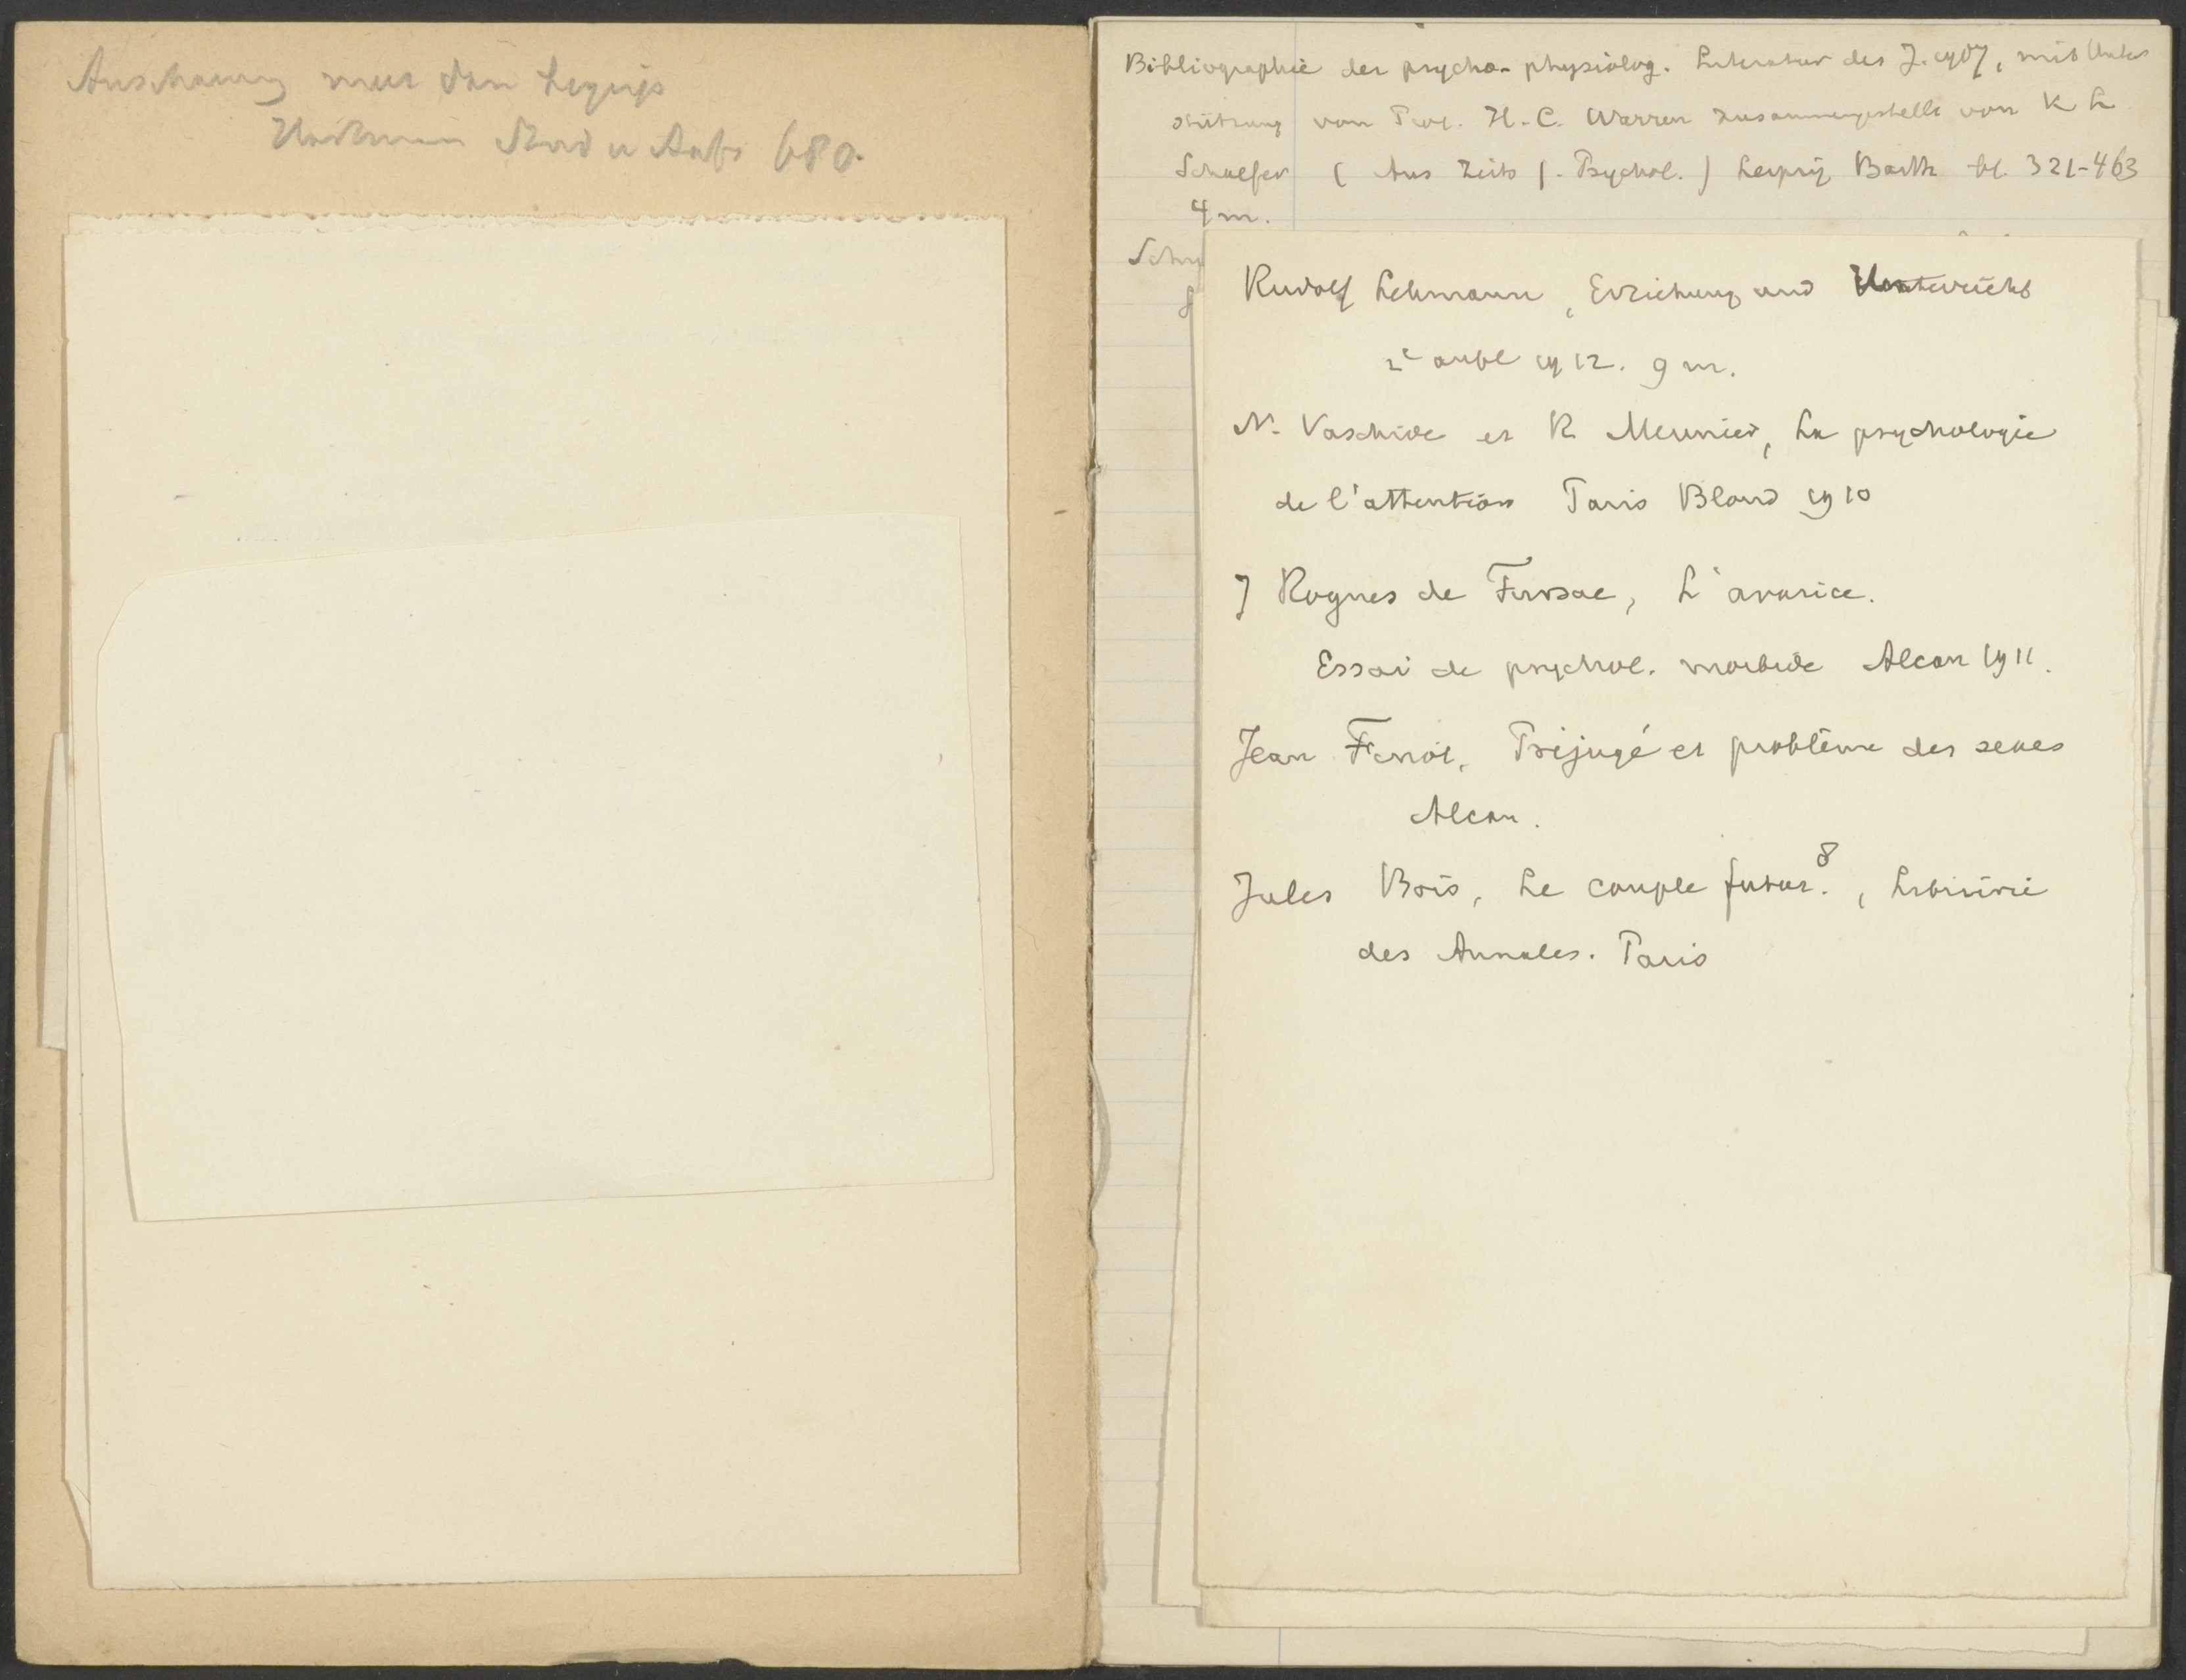 Anschauung
680.
Bibliographie der psycho-physiolog. Literatur des J. 1907, mit Unter
stützung von Prof. H. C. Warren zusammengestellt von K L
Schaefer (Aus Zeits f. Psychol.) Leipzig Barth bl. 321-463
4 m.
Rudolf Lehmann, Erziehung und Unterricht
2e aufl 1912. 9 m.
N. Vaschide et R Meunier, La psychologie
de l'attention Paris Bloud 1910
J Rogues de Fursac, L'avarice.
Essai de psychol. morbide Alcan 1911.
Jean Finot, Préjugé et problème des sexes
Alcan.
Jules Bois, Le couple futur. 8, Librairie
des Annales. Paris